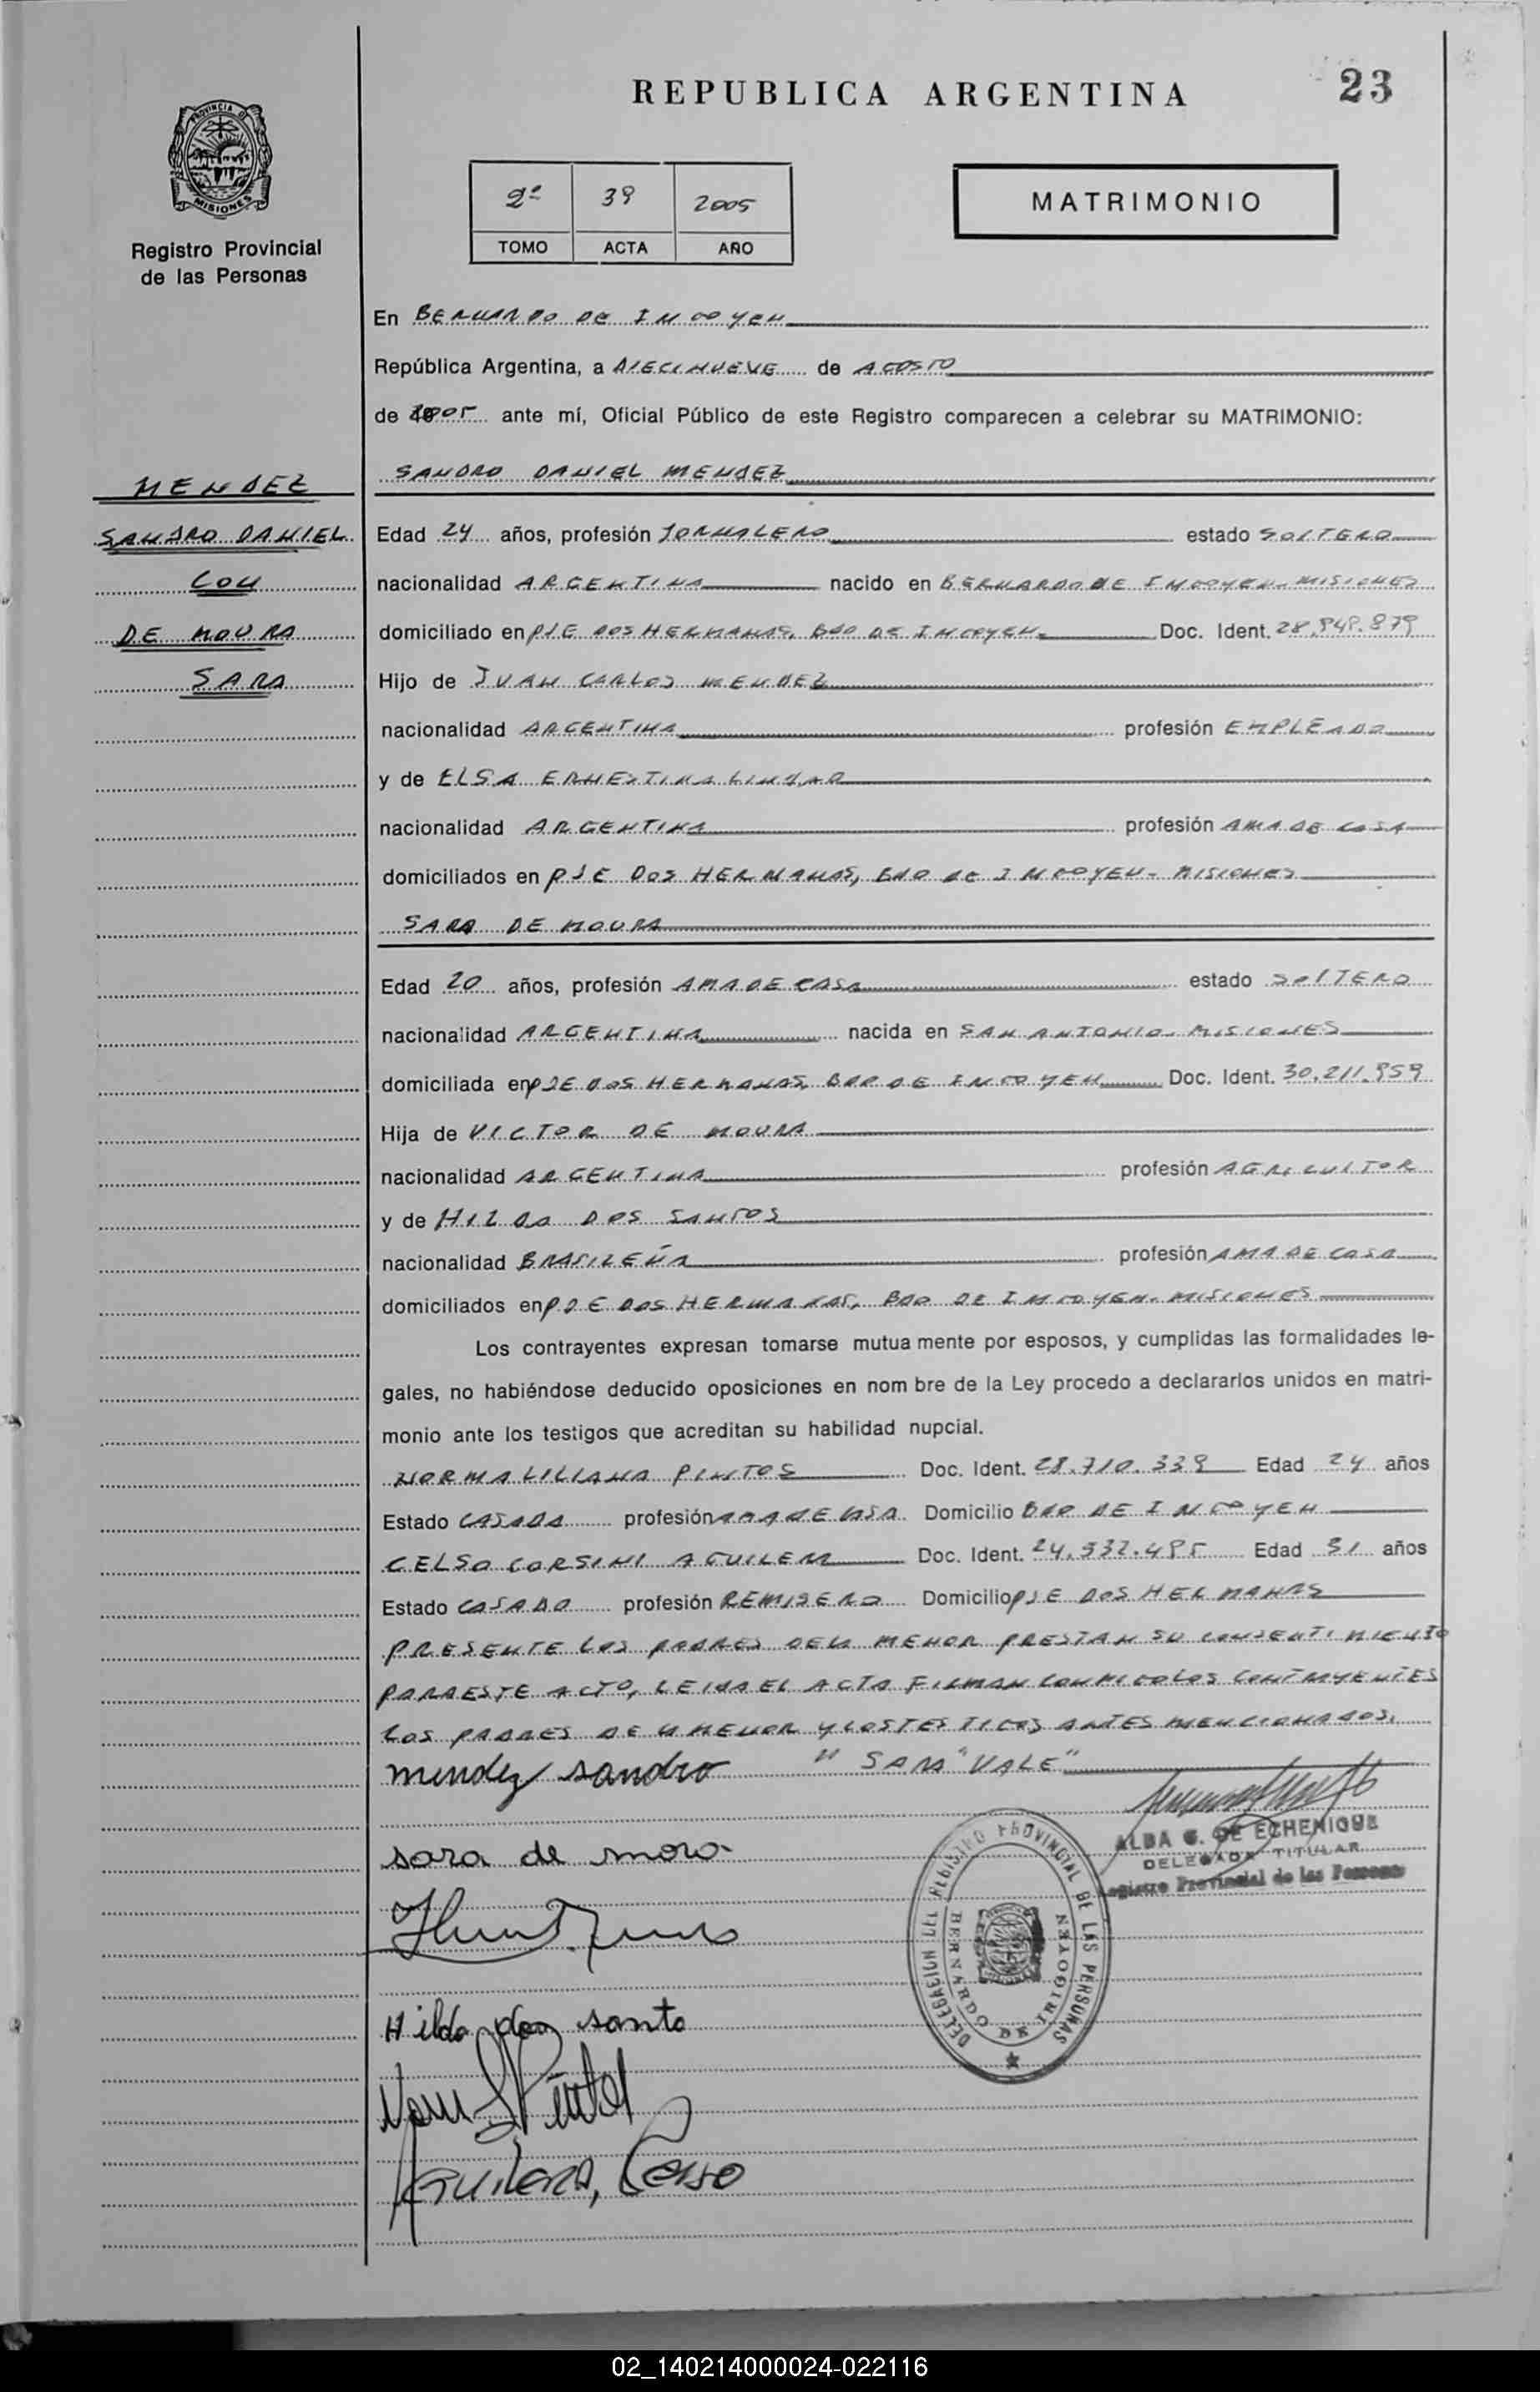 REPUBLICA ARGENTINA
23
PROVINCIA DE
MISIONES
Registro Provincial
de las Personas
2º 39 2005
TOMO ACTA AÑO
MATRIMONIO
En BERNARDO DE IRIGOYEN
República Argentina, a DIECINUEVE de AGOSTO
de 2005 ante mí, Oficial Público de este Registro comparecen a celebrar su MATRIMONIO:
SANDRO DANIEL MENDEZ
MENDEZ
SANDRO DANIEL
CON
DE MOURA
SARA
Edad 24 años, profesión JORNALERO estado SOLTERO
nacionalidad ARGENTINA nacido en BERNARDO DE IRIGOYEN - MISIONES
domiciliado en PJE DOS HERMANAS, BDO DE IRIGOYEN Doc. Ident. 28.948.879
Hijo de JUAN CARLOS MENDEZ
nacionalidad ARGENTINA profesión EMPLEADO
y de ELSA ERNESTINA
nacionalidad ARGENTINA profesión AMA DE CASA
domiciliados en PJE DOS HERMANAS, BDO DE IRIGOYEN - MISIONES
SARA DE MOURA
Edad 20 años, profesión AMA DE CASA estado SOLTERO
nacionalidad ARGENTINA nacida en SAN ANTONIO - MISIONES
domiciliada en PJE DOS HERMANAS, BDO DE IRIGOYEN Doc. Ident. 30.211.959
Hija de VICTOR DE MOURA
nacionalidad ARGENTINA profesión AGRICULTOR
y de HILDA DOS SANTOS
nacionalidad BRASILEÑA profesión AMA DE CASA
domiciliados en PJE DOS HERMANAS, BDO DE IRIGOYEN - MISIONES
Los contrayentes expresan tomarse mutua mente por esposos, y cumplidas las formalidades le-
gales, no habiéndose deducido oposiciones en nom bre de la Ley procedo a declararlos unidos en matri-
monio ante los testigos que acreditan su habilidad nupcial.
NORMA LILIANA PINTOS Doc. Ident. 28.710.339 Edad 24 años
Estado CASADA profesión AMA DE CASA Domicilio BDO DE IRIGOYEN
CELSO CORSINI AGUILERA Doc. Ident. 24.932.485 Edad 31 años
Estado CASADO profesión REMISERO Domicilio PJE DOS HERMANAS
PRESENTE LOS PADRES DE LA MENOR PRESTAN SU CONSENTIMIENTO
PARA ESTE ACTO, LEIDA EL ACTA FIRMAN CONMIGO LOS CONTRAYENTES
LOS PADRES DE LA MENOR Y LOS TESTIGOS ANTES MENCIONADOS.
mendez sandro "SARA" VALE"
ALBA G. DE ECHENIQUE
DELEGADA TITULAR
Registro Provincial de las Personas
sara de mora
DELEGACION DEL REGISTRO PROVINCIAL DE LAS PERSONAS
BERNARDO DE IRIGOYEN
Hilda dos santo
AGUILERA, CELSO
02_140214000024-022116